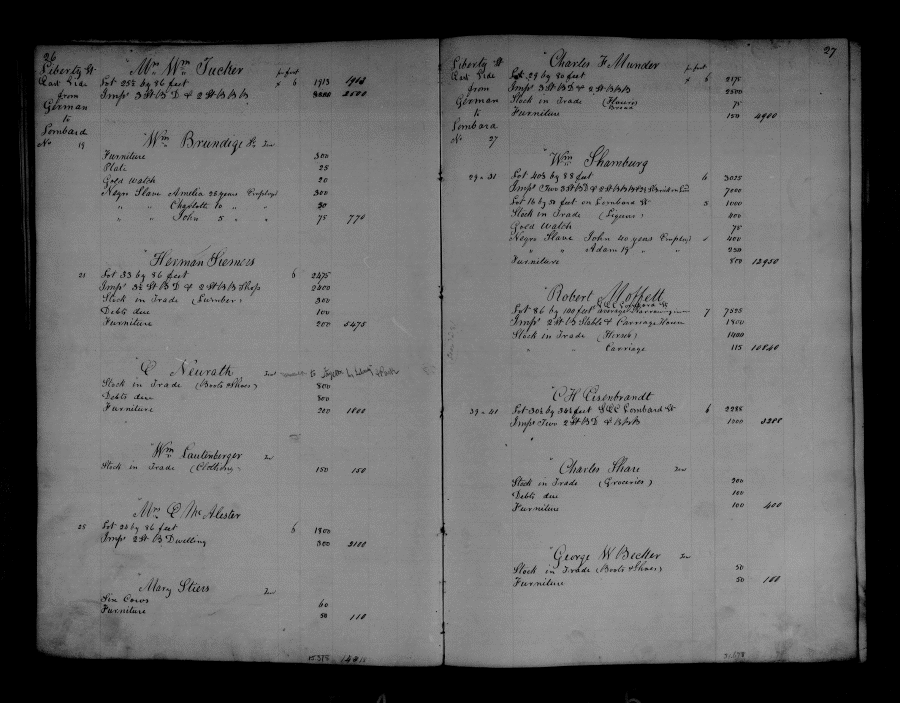 26
Liberty St
East Side
from
German
to
Lombard
No 19
Wm Tucker per foot
Lot 25½ by 86 feet x 6 1913 1913
Imps 3 St B D & 2 St B B B 2500
Wm Brundige Ten
Furniture 300
Plate 25
Gold Watch 20
Negro Slave Amelia 25 years (Employ) 300
" " Charlotte 10 " "
" " John 5 " " 75 770
Herman Siemers
21 Lot 33 by 86 feet 6 2475
Imps 3½ St B D & 2 St B B Shop
Stock in Trade (Lumber) 300
Debts due 100
Furniture 200 5475
C Neurath Ten
Stock in Trade (Boots & Shoes) 800
Debts due 800
Furniture 200 1800
Wm Lautenberger Ten
Stock in Trade (Clothing) 150 150
Mrs C McAlester
25 Lot by 86 feet 6 1800
Imps 2 St B Dwelling 300 2100
Mary Stiers Ten
Six Cows 60
Furniture 50 110
27
Liberty St
East Side
from
German
to
Lombard
No 27
Charles F Munder per foot
Lot 29 by 80 feet x 6 2175
Imps 3 St B D & 2 St B B B 2500
Stock in Trade 75
Furniture 150 4900
Wm Shamburg
29 - 31 Lot 40⅓ by 88 feet 6 3025
Imps Two 3 St B D & 2 St B B B 7000
Lot 16 by 50 feet on Lombard St 5 1000
Stock in Trade (Liquors) 400
Gold Watch 75
Negro Slave John 40 years (Employ) 400
" " Adam 19 " "
Furniture 800 12950
Robert Moffett
Lot 86 by 100 feet 7 7525
Imps 2 St B Stable & Carriage House 1800
Stock in Trade (Horses) 1400
" " Carriage 115 10840
C H Eisenbrandt
39 - 41 Lot 30½ by feet Lombard St 6 2288
Imps Two 2 St B D & B B B 1000 3288
Charles Share Ten
Stock in Trade (Groceries) 200
Debts due 100
Furniture 100 400
George W Becker Ten
Stock in Trade (Boots & Shoes) 50
Furniture 50 100